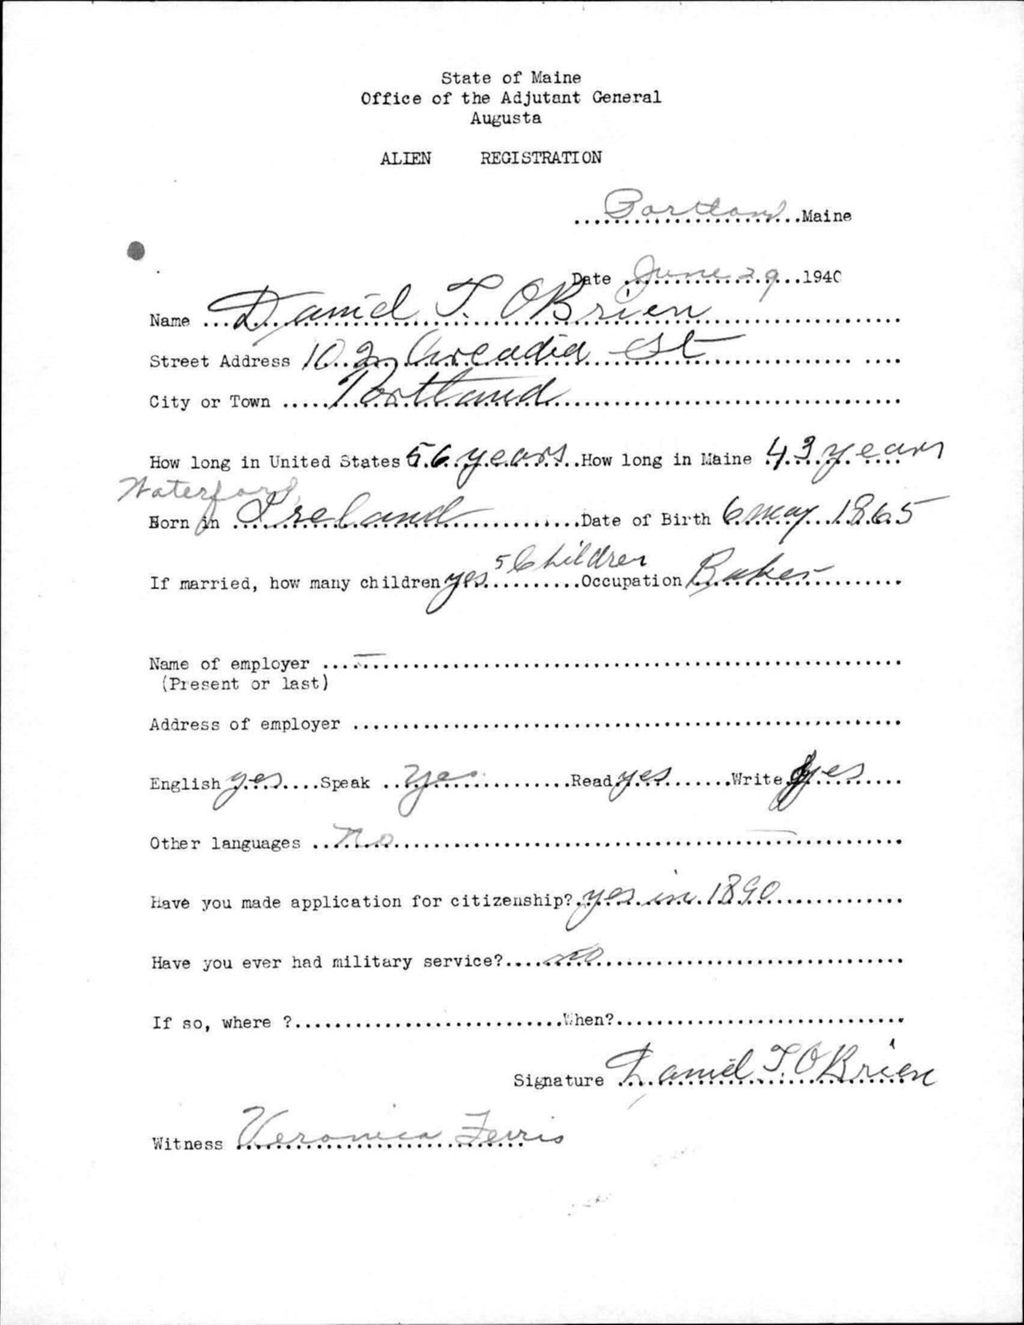 State of Maine
Office of the Adjutant General
Augusta
ALIEN REGISTRATION
Portland Maine
Date June 29 1940
Name Daniel T. O Brien
Street Address 102 Arcadia St
City or Town Portland
How long in United States 56 years How long in Maine 43 years
Waterford
Born in Ireland Date of Birth 6 may 1865
5 Children
If married, how many children yes Occupation Baker
Name of employer —
(Present or last)
Address of employer
English yes Speak yes Read yes Write yes
Other languages no —
Have you made application for citizenship? yes in 1890
Have you ever had military service? no
If so, where ? When?
Signature Daniel T. O Brien
Witness Veronica Ferris